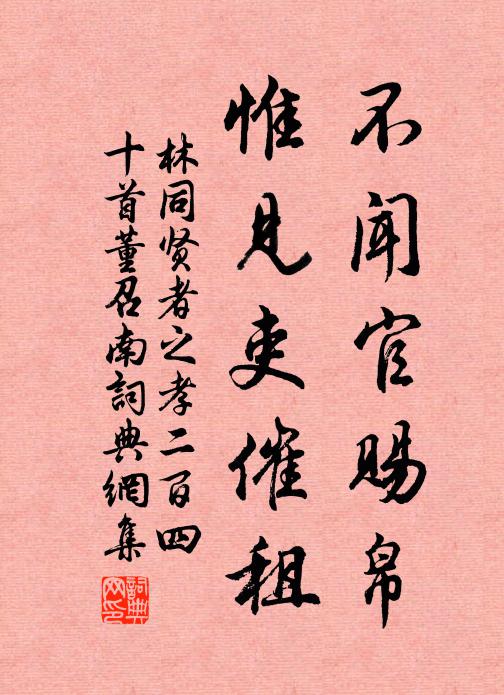 不闻官赐帛
惟见吏催租
林同贤者之孝二百四
十首董召南词典網集
詞典網印